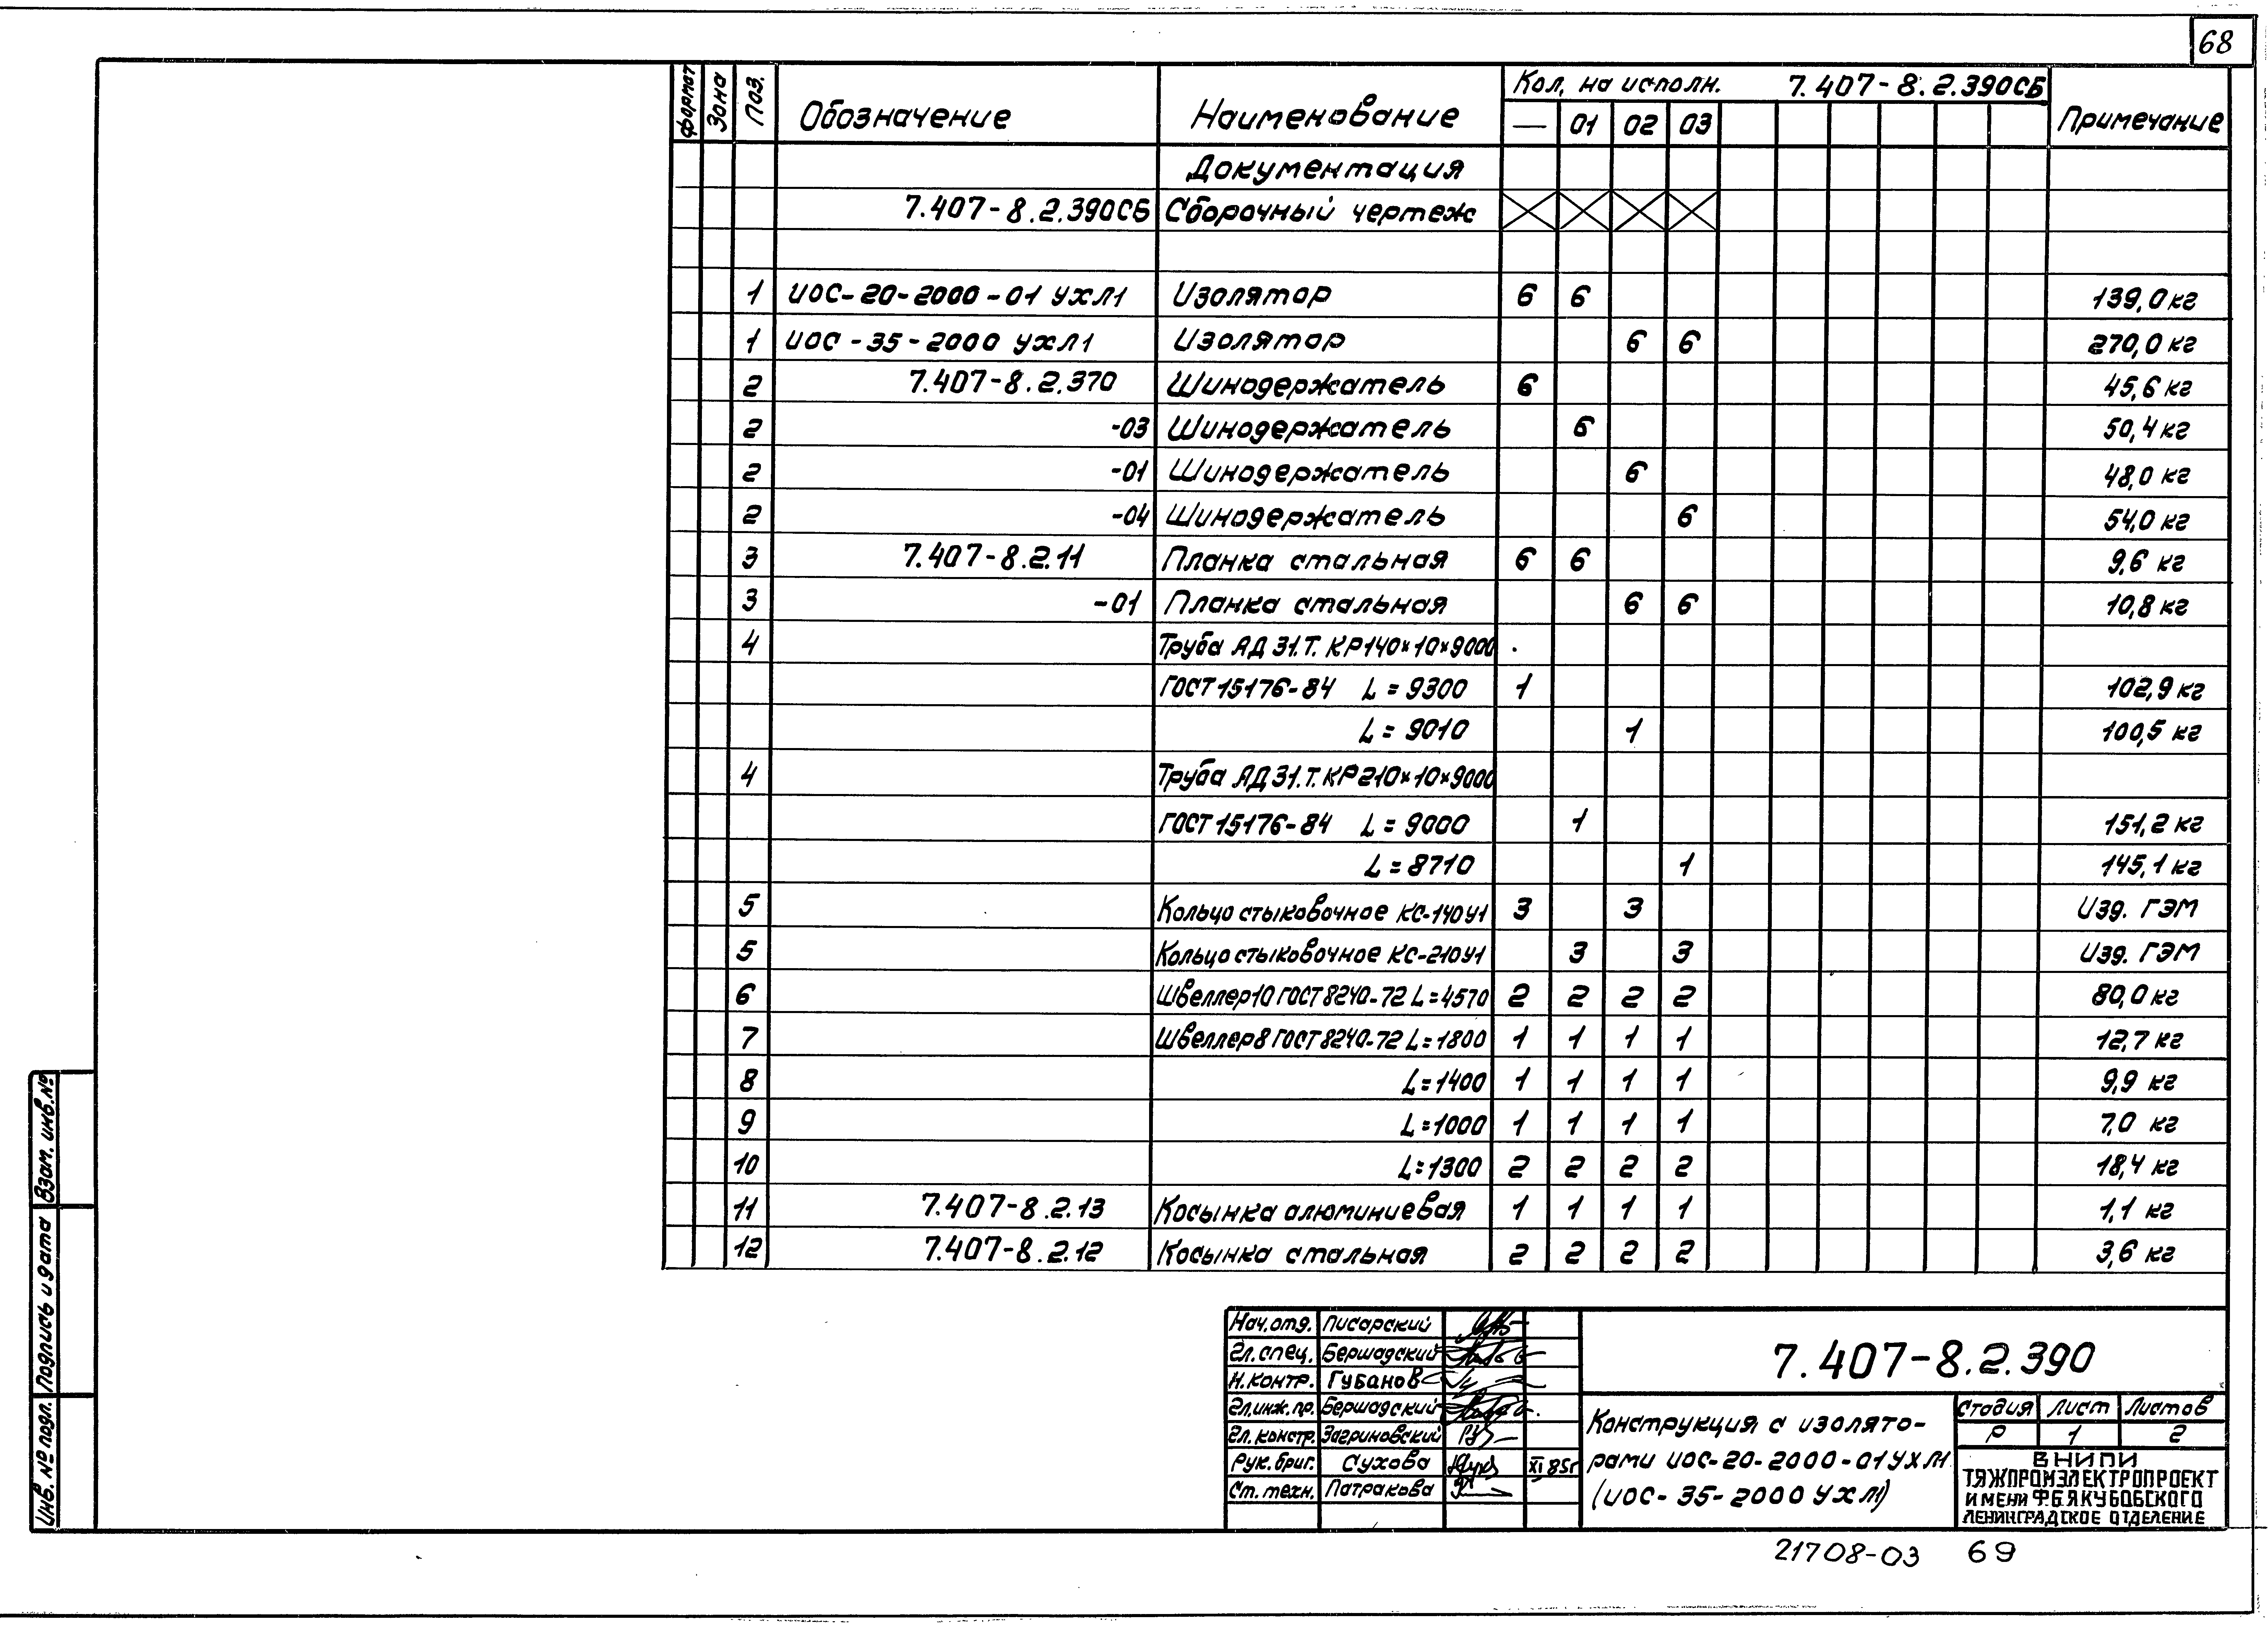 68
Формат Зона Поз. Обозначение Наименование Кол. на исполн. 7.407-8.2.390СБ Примечание
— 01 02 03
Документация
7.407-8.2.390СБ Сборочный чертеж
1 ИОС-20-2000-01 УХЛ1 Изолятор 6 6 139,0 кг
1 ИОС-35-2000 УХЛ1 Изолятор 6 6 270,0 кг
2 7.407-8.2.370 Шинодержатель 6 45,6 кг
2 -03 Шинодержатель 6 50,4 кг
2 -01 Шинодержатель 6 48,0 кг
2 -04 Шинодержатель 6 54,0 кг
3 7.407-8.2.11 Планка стальная 6 6 9,6 кг
3 -01 Планка стальная 6 6 10,8 кг
4 Труба АД 31.Т. КР 140×10×9000
ГОСТ 15176-84 L=9300 1 102,9 кг
L=9010 1 100,5 кг
4 Труба АД 31.Т. КР 210×10×9000
ГОСТ 15176-84 L=9000 1 151,2 кг
L=8710 1 145,1 кг
5 Кольцо стыковочное КС-140У1 3 3 Изд. ГЭМ
5 Кольцо стыковочное КС-210У1 3 3 Изд. ГЭМ
6 Швеллер 10 ГОСТ 8240-72 L=4570 2 2 2 2 80,0 кг
7 Швеллер 8 ГОСТ 8240-72 L=1800 1 1 1 1 12,7 кг
8 L=1400 1 1 1 1 9,9 кг
9 L=1000 1 1 1 1 7,0 кг
10 L=1300 2 2 2 2 18,4 кг
11 7.407-8.2.13 Косынка алюминиевая 1 1 1 1 1,1 кг
12 7.407-8.2.12 Косынка стальная 2 2 2 2 3,6 кг
Инв. № подл. Подпись и дата Взам. инв. №
Нач. отд. Писарский
Гл. спец. Бершадский
Н. контр. Губанов
Гл. инж. пр. Бершадский
Гл. констр. Загриновский
Рук. бриг. Сухова XI 85г
Ст. техн. Патракова
7.407-8.2.390
Конструкция с изолято-
рами ИОС-20-2000-01 УХЛ1
(ИОС-35-2000 УХЛ1)
Стадия Лист Листов
Р 1 2
ВНИПИ
ТЯЖПРОМЭЛЕКТРОПРОЕКТ
ИМЕНИ Ф.Б.ЯКУБОВСКОГО
ЛЕНИНГРАДСКОЕ ОТДЕЛЕНИЕ
21708-03 69